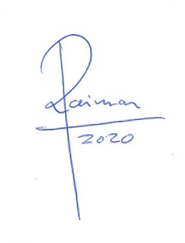 Raiman
2020